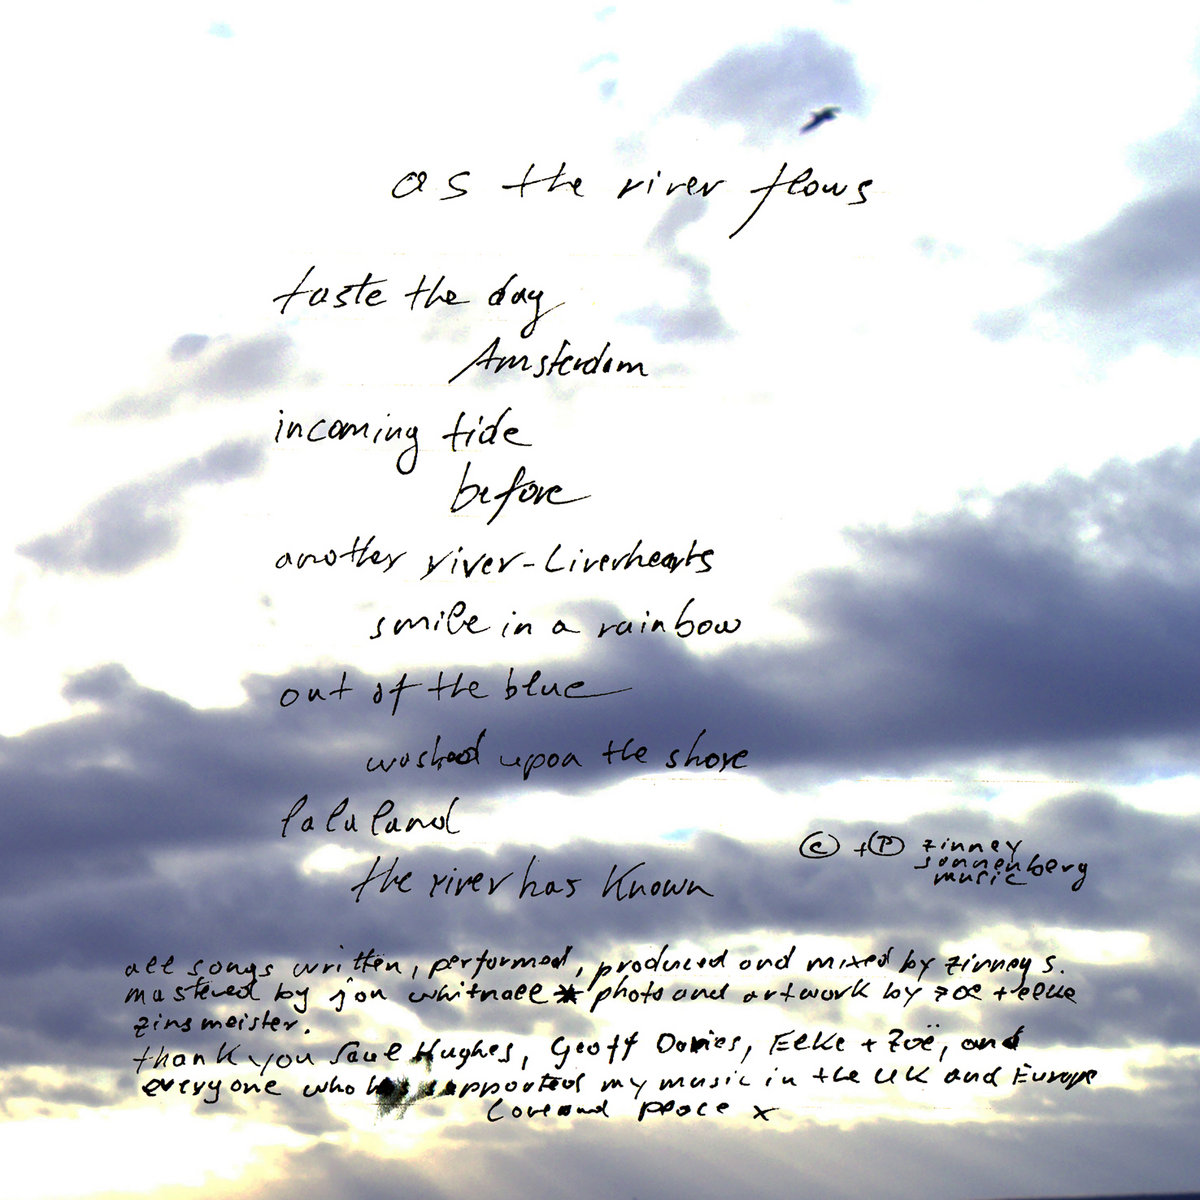 as the river flows
taste the day
Amsterdam
incoming tide
before
another river - Liverhearts
smile in a rainbow
out of the blue
washed upon the shore
lalaland
the river has known
© + ℗ zinney
sonnenberg
music
all songs written, performed, produced and mixed by zinney s.
mastered by jon whitnall * photo and artwork by zoe + elke
zinsmeister.
thank you Saul Hughes, Geoff Davies, Elke + Zoë, and
everyone who has supported my music in the UK and Europe
Love and peace x